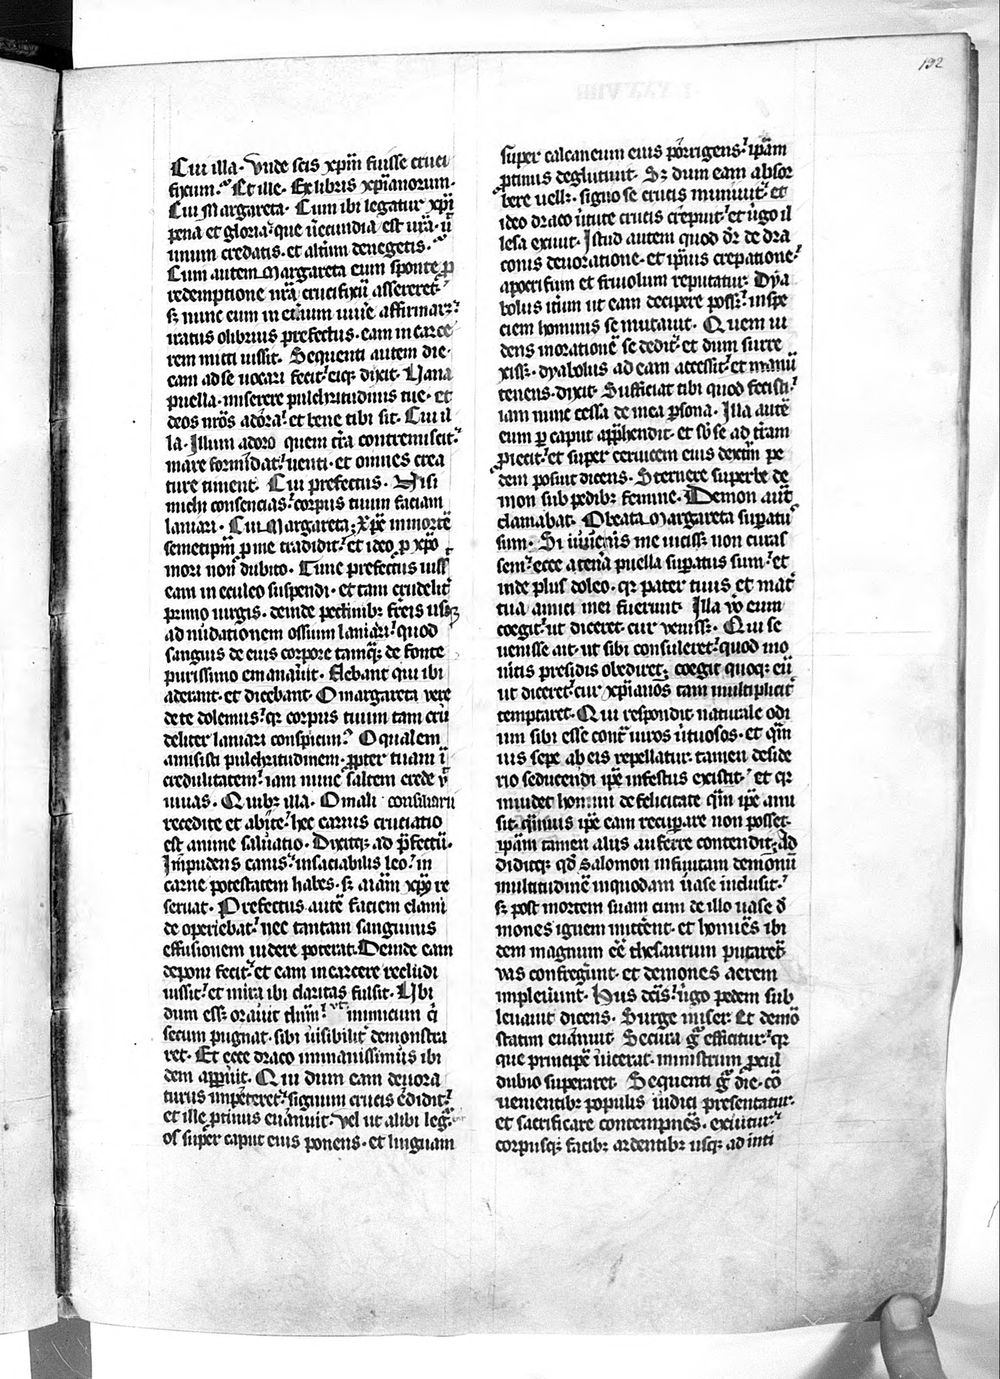 192
Cui illa. Vnde scis xp̄m fuisse cruci
fixum. Et ille. Ex libris xp̄ianorum.
Cui Margareta. Cum ibi legatur xp̄i
pena et gloria: que uerecundia est ur̄a. ū
unum credatis. et altūm denegetis.
Cum autem Margareta eum sponte p̱
redemptione nr̄a crucifixū assereret:
sȝ nunc eum in et̄num uiuē affirmarȝ:
iratus olibrius prefectus. eam in carce
rem mitti iussit. Sequenti autem die.
eam ad se uocari fecit: eiqȝ dixit. Uana
puella. miserere pulchritudinis tue. et
deos nr̄os adora: et bene tibi sit. Cui il
la. Illum adoro quem t̄ra contremiscit:
mare formidat: uenti. et omnes crea
ture timent. Cui prefectus. Nisi
michi consencias: corpus tuum faciam
laniari. Cui Margareta; Xp̄c in mortē
semetip̄m p̱ me tradidit: et ideo p̱ xp̄o
mori non dubito. Tunc prefectus iuss̄
eam in eculeo suspendi. et tam crudelit̄
primo uirgis. deinde pectinibȝ fr̄eis usqȝ
ad nudationem ossium laniari: quod
sanguis de eius corpore tamqȝ de fonte
purissimo emanauit. Flebant qui ibi
aderant. et dicebant. O margareta uere
de te dolemus: qȝ corpus tuum tam crū
deliter laniari conspicim: O qualem
amisisti pulchritudinem. p̱pter tuam ī
credulitatem: iam nunc saltem crede ut
uiuas. Quibȝ illa. O mali consiliarii
recedite et abite: hec carnis cruciatio
est anime saluatio. Dixitqȝ ad p̄fectū.
Impudens canis: insaciabilis leo: in
carne potestatem habes. sȝ aīam xp̄c re
seruat. Prefectus autē faciem clami
de operiebat: nec tantam sanguinis
effusionem uidere poterat. Deinde eam
deponi fecit: et eam in carcere recludi
iussit: et mira ibi claritas fulsit. Ubi
dum essȝ orauit dn̄m: ut inimicum q̄
secum pugnat. sibi uisibilit̄ demonstra
ret. Et ecce draco immanissimus ibi
dem app̱uit. Qui dum eam deuora
turus impeteret: signum crucis edidit:
et ille p̱tinus euanuit. vel ut alibi legr̄.
os super caput eius ponens. et linguam
super calcaneum eius porrigens: ip̄am
p̱tinus deglutiuit. Sȝ dum eam absor
bere uellȝ. signo se crucis muniuit: et
ideo draco uirtute crucis crepuit: et uirgo il
lesa exiuit. Istud autem quod dr̄ de dra
conis deuoratione. et ip̄ius crepatione:
apocrifum et friuolum reputatur. Dya
bolus itūm ut eam decipere possȝ: in spe
ciem hominis se mutauit. Quem ui
dens in orationē se dedit: et dum surre
xissȝ. dyabolus ad eam accessit: et manū
tenens. dixit. Sufficiat tibi quod fecisti:
iam nunc cessa de mea p̱sona. Illa autē
eum p̱ caput app̄hendit. et sb̄ se ad t̄ram
p̱iecit: et super ceruicem eius dextrum pe
dem posuit dicens. Sternere superbe de
mon sub pedibȝ femine. Demon aut̄
clamabat. O beata Margareta supatus
sum. Si iuuenis me uicissȝ non curas
sem: ecce a tenera puella supatus sum: et
inde plus doleo. qȝ pater tuus et mat̄
tua amici mei fuerunt. Illa v̊o eum
coegit: ut diceret. cur venissȝ. Qui se
uenisse ait. ut sibi consuleret: quod mo
nitis presidis obediret; coegit quoqȝ eū
ut diceret: cur xp̄ianos tam multiplicit̄
temptaret. Qui respondit. naturale odi
um sibi esse contra uiros uirtuosos. et qm̄
uis sepe ab eis repellatur. tamen deside
rio seducendi ip̄e infestus existit: et qȝ
inuidet homini de felicitate qm̄ ip̄e ami
sit. quamuis ip̄e eam recuperare non posset.
ip̄am tamen aliis auferre contendit; Ad
diditqȝ qd̄ Salomon infinitam demonū
multitudinē in quodam uase inclusit:
sȝ post mortem suam cum de illo uase de
mones ignem mitterent. et homines ibi
dem magnum eē thesaurum putarent̄
vas confregerunt. et demones aerem
impleuerunt. Hiis dictis: uirgo pedem sub
leuauit dicens. Surge miser. Et demon
statim euanuit. Secura gͦ efficitur: qȝ
que principē uicerat. ministrum p̱cul
dubio superaret. Sequenti gͦ die. cō
uenientibȝ populis iudici presentatur.
et sacrificare contempnens. exuitur:
corpusqȝ facibȝ ardentibȝ usqȝ ad inti